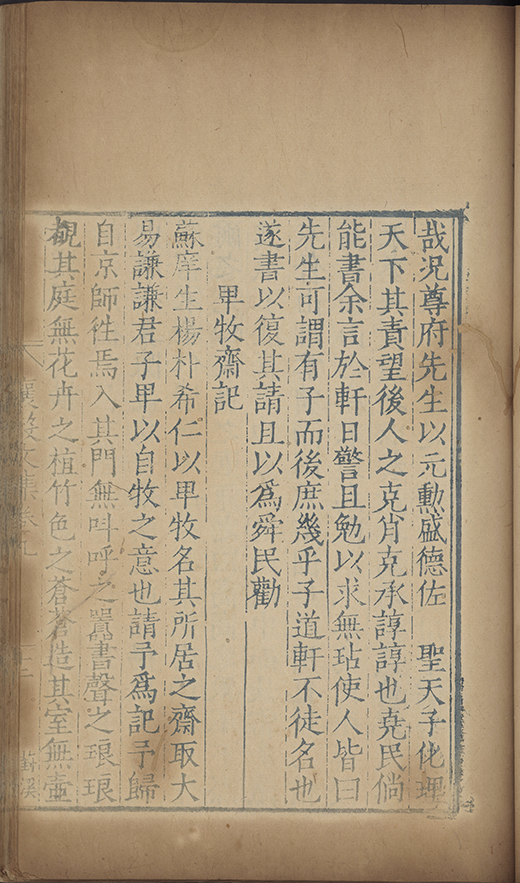 哉况尊府先生以元勳盛德佐　聖天子化理
天下其責望後人之克肖克承諄諄也堯民倘
能書余言於軒日警且勉以求無玷使人皆曰
先生可謂有子而後庶幾乎子道軒不徒名也
遂書以復其請且以爲舜民勸
卑牧齋記
蘇庠生楊朴希仁以卑牧名其所居之齋取大
易謙謙君子卑以自牧之意也請予爲記予歸
自京師徃焉入其門無呌呼之嚻書聲之琅琅
覩其庭無花卉之植竹色之蒼蒼造其室無壺
襄毅文集卷九